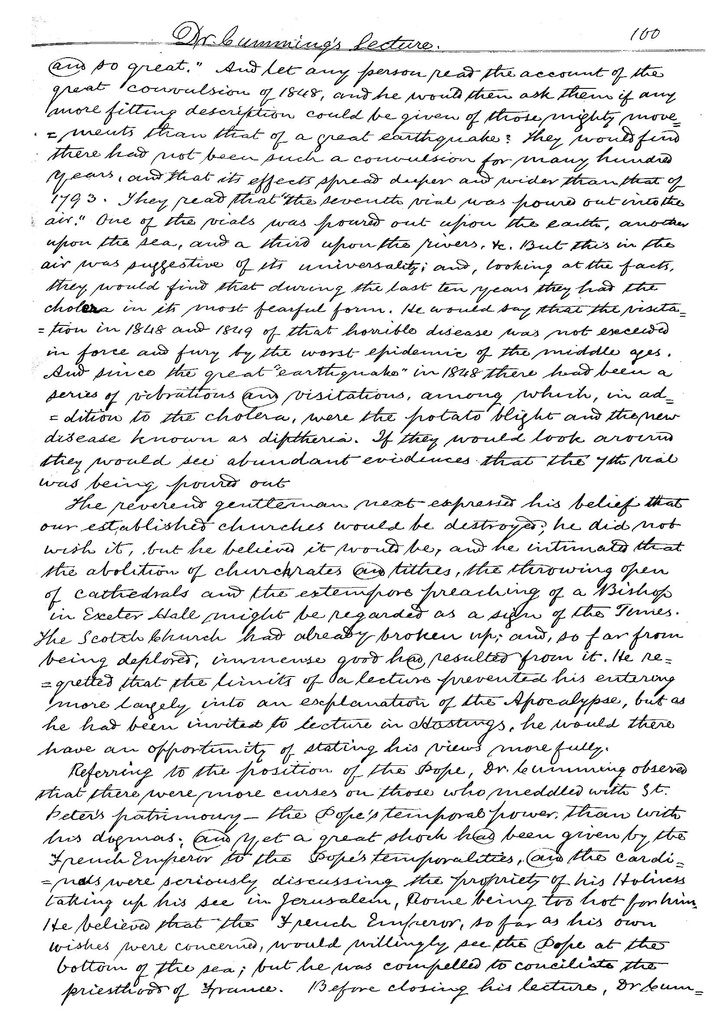 Dr. Cumming's Lecture. 100
and so great." And let any person read the account of the
great convulsion of 1848, and he would then ask them if any
more fitting description could be given of those mighty move=
=ments than that of a great earthquake? They would find
there had not been such a convulsion for many hundred
years, and that its effects spread deeper and wider than that of
1793. They read that "the seventh vial was poured out into the
air." One of the vials was poured out upon the earth, another
upon the sea, and a third upon the rivers, &c. But this in the
air was suggestive of its universality; and, looking at the facts,
they would find that during the last ten years they had the
cholera in its most fearful form. He would say that the visita=
=tion in 1848 and 1849 of that horrible disease was not exceeded
in force and fury by the worst epidemic of the middle ages.
And since the great "earthquake" in 1848 there had been a
series of vibrations and visitations, among which, in ad=
=dition to the cholera, were the potato blight and the new
disease known as diptheria. If they would look around
they would see abundant evidences that the 7th vial
was being poured out
The reverend gentleman next expressed his belief that
our established churches would be destroyed; he did not
wish it, but he believed it would be, and he intimated that
the abolition of churchrates and tithes, the throwing open
of cathedrals and the extempore preaching of a Bishop
in Exeter Hall might be regarded as a sign of the Times.
The Scotch Church had already broken up; and, so far from
being deplored, immense good had resulted from it. He re=
=gretted that the limits of a lecture prevented his entering
more largely into an explanation of the Apocalypse, but as
he had been invited to lecture in Hastings, he would there
have an opportunity of stating his views more fully.
Referring to the position of the Pope, Dr. Cumming observed
that there were more curses on those who meddled with St.
Peter's patrimony — the Pope's temporal power, than with
his dogmas; and yet a great shock had been given by the
French Emperor to the Pope's temporalities, and the cardi=
=nals were seriously discussing the propriety of his Holiness
taking up his see in Jerusalem, Rome being too hot for him.
He believed that the French Emperor, so far as his own
wishes were concerned, would willingly see the Pope at the
bottom of the sea; but he was compelled to conciliate the
priesthood of France. Before closing his lecture, Dr Cum=